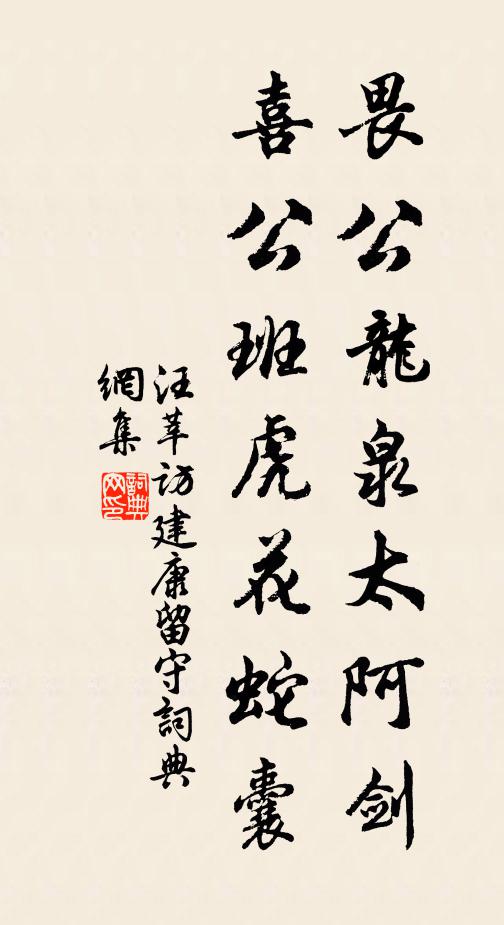 畏公龍泉太阿劍
喜公班虎花蛇囊
汪莘訪建康留守詞典
網集
詞典
网印